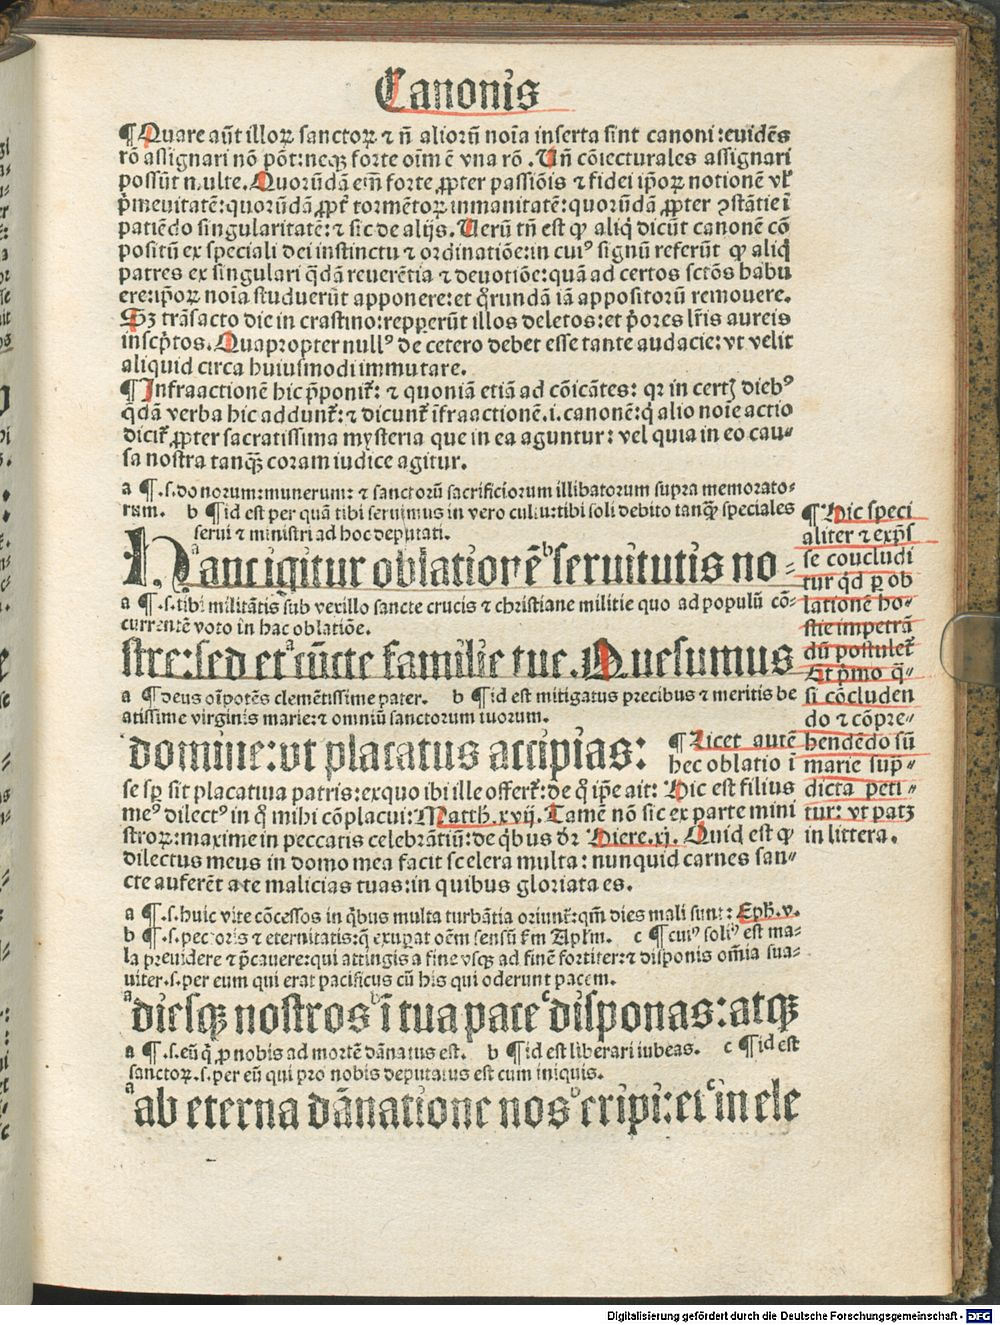 Canonis
¶ Quare aūt illoꝝ sanctoꝝ ⁊ n̄ alioꝝ nōia inserta sint canoni: euidēs
rō assignari nō pōt: neqꝫ forte oīm ē vna rō. Un̄ cōiecturales assignari
possūt multe. Quorūdā em̄ forte ꝓpter passiōis ⁊ fidei ip̄oꝝ notionē vl̓
p̄meuitatē: quorūdā ꝓpt̓ tormētoꝝ inmanitatē: quorūdā ꝓpter ꝯstātie ī
patiēdo singularitatē: ⁊ sic de alijs. Uerū tn̄ est ꝙ aliq̇ dicūt canonē cō
positū ex speciali dei instinctu ⁊ ordinatiōe: in cuiꝰ signū referūt ꝙ aliq̇
patres ex singulari q̇dā reuerētia ⁊ deuotiōe: quā ad certos sctōs habu
ere: ip̄oꝝ noīa studuerūt apponere: et q̇rundā iā appositorū remouere.
Sꝫ trāsacto die in crastino: repperūt illos deletos: et p̄ores lr̄is aureis
inscp̄tos. Quapropter nullꝰ de cetero debet esse tante audacie: vt velit
aliquid circa huiusmodi immutare.
¶ Infraactionē hic p̄ponit̓: ⁊ quoniā etiā ad cōicātes: qꝛ in certꝭ diebꝰ
q̇dā verba hic addunt̓: ⁊ dicunt̓ īfraactionē .i. canonē: q̇ alio noīe actio
dicit̓ ꝓpter sacratissima mysteria que in ea aguntur: vel quia in eo cau⸗
sa nostra tanqꝫ̄ coram iudice agitur.
a ¶ .s. donorum: munerum: ⁊ sanctorū sacrificiorum illibatorum supra memorato⸗
rum. b ¶ id est per quā tibi seruimus in vero cultu: tibi soli debito tanqꝫ̄ speciales
serui ⁊ ministri ad hoc deputati.
Hanc igitur oblationē seruitutis no⸗
a ¶ .s. tibi militātis sub vexillo sancte crucis ⁊ christiane militie quo ad populū cō⸗
currentē voto in hac oblatiōe.
stre: sed et cūcte familie tue. Quesumus
a ¶ deus oīpotēs clemētissime pater. b ¶ id est mitigatus precibus ⁊ meritis be
atissime virginis marie: ⁊ omniū sanctorum tuorum.
domine: vt placatus accipias:
¶ Licet autē
hec oblatio ī
se sp̄ sit placatiua patris: ex quo ibi ille offert̓: de q̇ ip̄e ait: Hic est filius
meꝰ dilectꝰ in q̇ mihi cōplacui: Matth. xvij. Tamē nō sic ex parte mini
stroꝝ: maxime in peccatis celebrātiū: de q̇bus dr̄ Hiere. xj. Quid est ꝙ
dilectus meus in domo mea facit scelera multa: nunquid carnes san⸗
cte auferēt a te malicias tuas: in quibus gloriata es.
a ¶ .s. huic vite cōcessos in q̇bus multa turbātia oriunt̓: qm̄ dies mali sunt: Eph. v.
b ¶ .s. pectoris ⁊ eternitatis: q̄ exuꝑat oēm sensū ẜm Apl̄m. c ¶ cuiꝰ soliꝰ est ma⸗
la preuidere ⁊ p̄cauere: qui attingis a fine vsqꝫ ad finē fortiter: ⁊ disponis om̄ia sua⸗
uiter .s. per eum qui erat pacificus cū his qui oderunt pacem.
diesqꝫ nostros ī tua pace disponas: atqꝫ
a ¶ .s. eū q̇ ꝓ nobis ad mortē dānatus est. b ¶ id est liberari iubeas. c ¶ id est
sanctoꝝ .s. per eū qui pro nobis deputatus est cum iniquis.
ab eterna dānatione nos eripi: et in ele
¶ Hic speci
aliter ⁊ exp̄s
se concludi
tur q̇d ꝑ ob
lationē ho⸗
stie impetrā
dū postulet̓
Et p̄mo q̄⸗
si cōcluden
do ⁊ cōpre⸗
hendēdo sū
marie sup⸗
dicta peti⸗
tur: vt patꝫ
in littera.
Digitalisierung gefördert durch die Deutsche Forschungsgemeinschaft - DFG